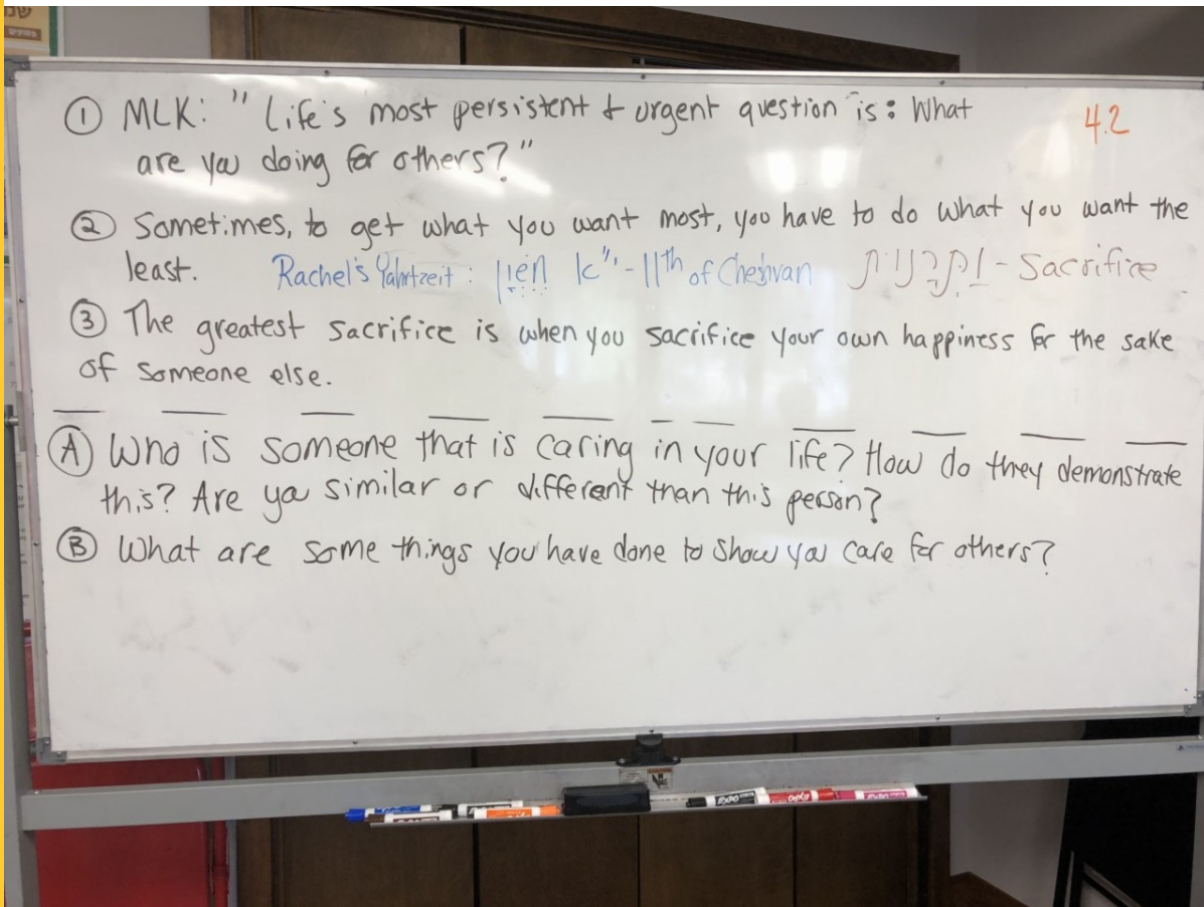 ① MLK: "Life's most persistent & urgent question is: What
4.2
are you doing for others?"
② Sometimes, to get what you want most, you have to do what you want the
least. Rachel's Yahrtzeit: י"א חשון - 11th of Cheshvan ותרנות - Sacrifice
③ The greatest sacrifice is when you sacrifice your own happiness for the sake
of someone else.
Ⓐ Who is someone that is caring in your life? How do they demonstrate
this? Are you similar or different than this person?
Ⓑ What are some things you have done to show you care for others?
EXPO
EXPO
EXPO